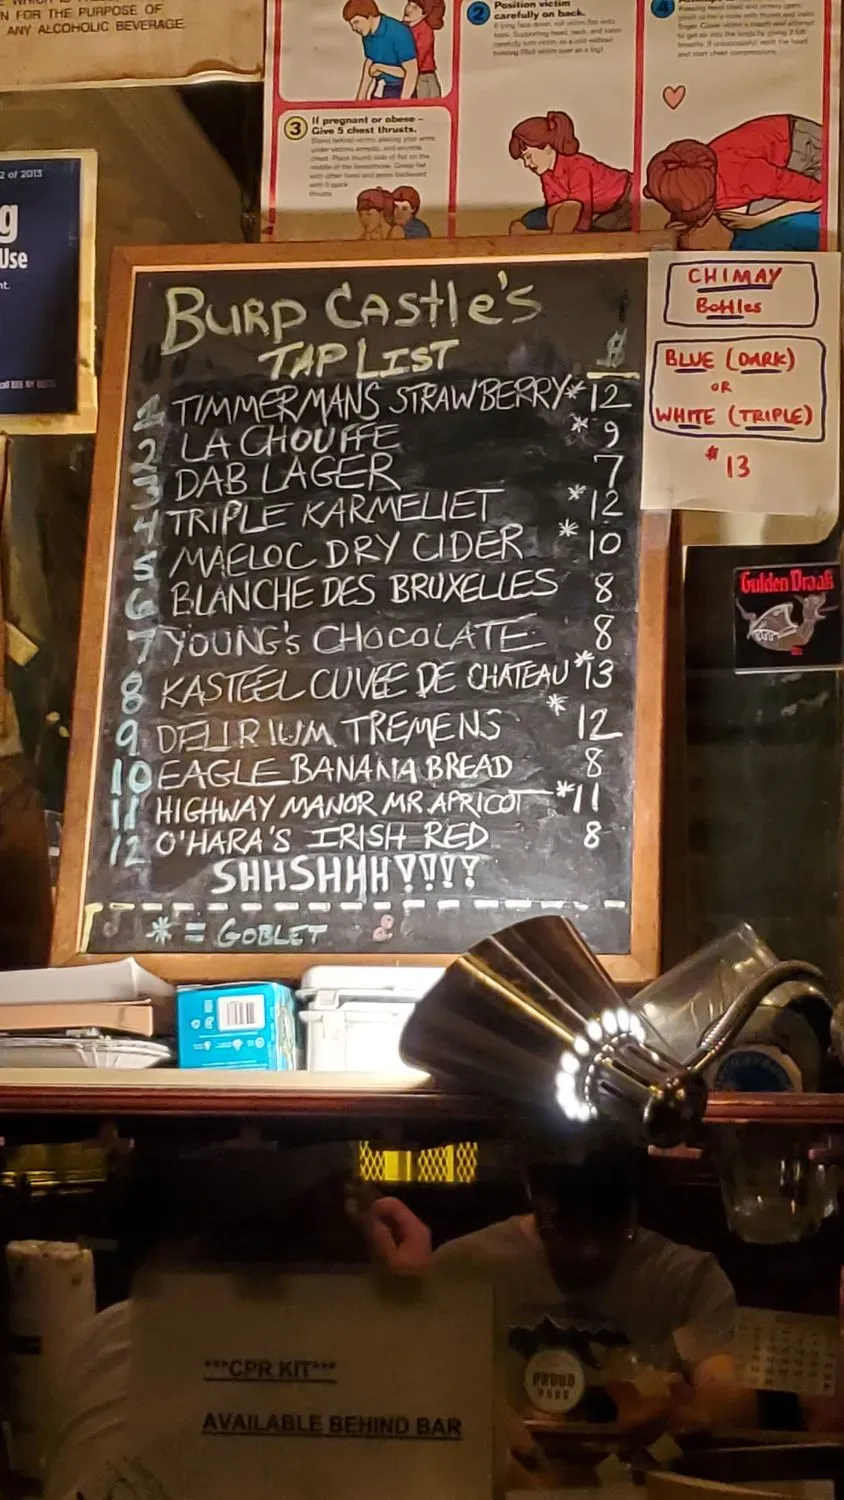 N FOR THE PURPOSE OF
ANY ALCOHOLIC BEVERAGE
2 Position victim
carefully on back.
4
3 If pregnant or obese –
Give 5 chest thrusts.
2 of 2013
g
Use
nt.
BURP CAStlE's
TAP LIST $
1 TIMMERMANS STRAWBERRY* 12
2 LA CHOUFFE * 9
3 DAB LAGER 7
4 TRIPLE KARMELIET * 12
5 MAELOC DRY CIDER * 10
6 BLANCHE DES BRUXELLES 8
7 YOUNG'S CHOCOLATE 8
8 KASTEEL CUVEE DE CHATEAU * 13
9 DELIRIUM TREMENS * 12
10 EAGLE BANANA BREAD 8
11 HIGHWAY MANOR MR APRICOT - * 11
12 O'HARA'S IRISH RED 8
SHHSHHH!!!!
* = GOBLET
CHIMAY
Bottles
BLUE (DARK)
OR
WHITE (TRIPLE)
$13
Gulden Draak
***CPR KIT***
AVAILABLE BEHIND BAR
PROUD